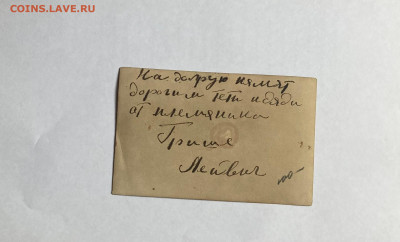 COINS.LAVE.RU
На добрую память
дорогим тети и дяди
от племяника
Гриши